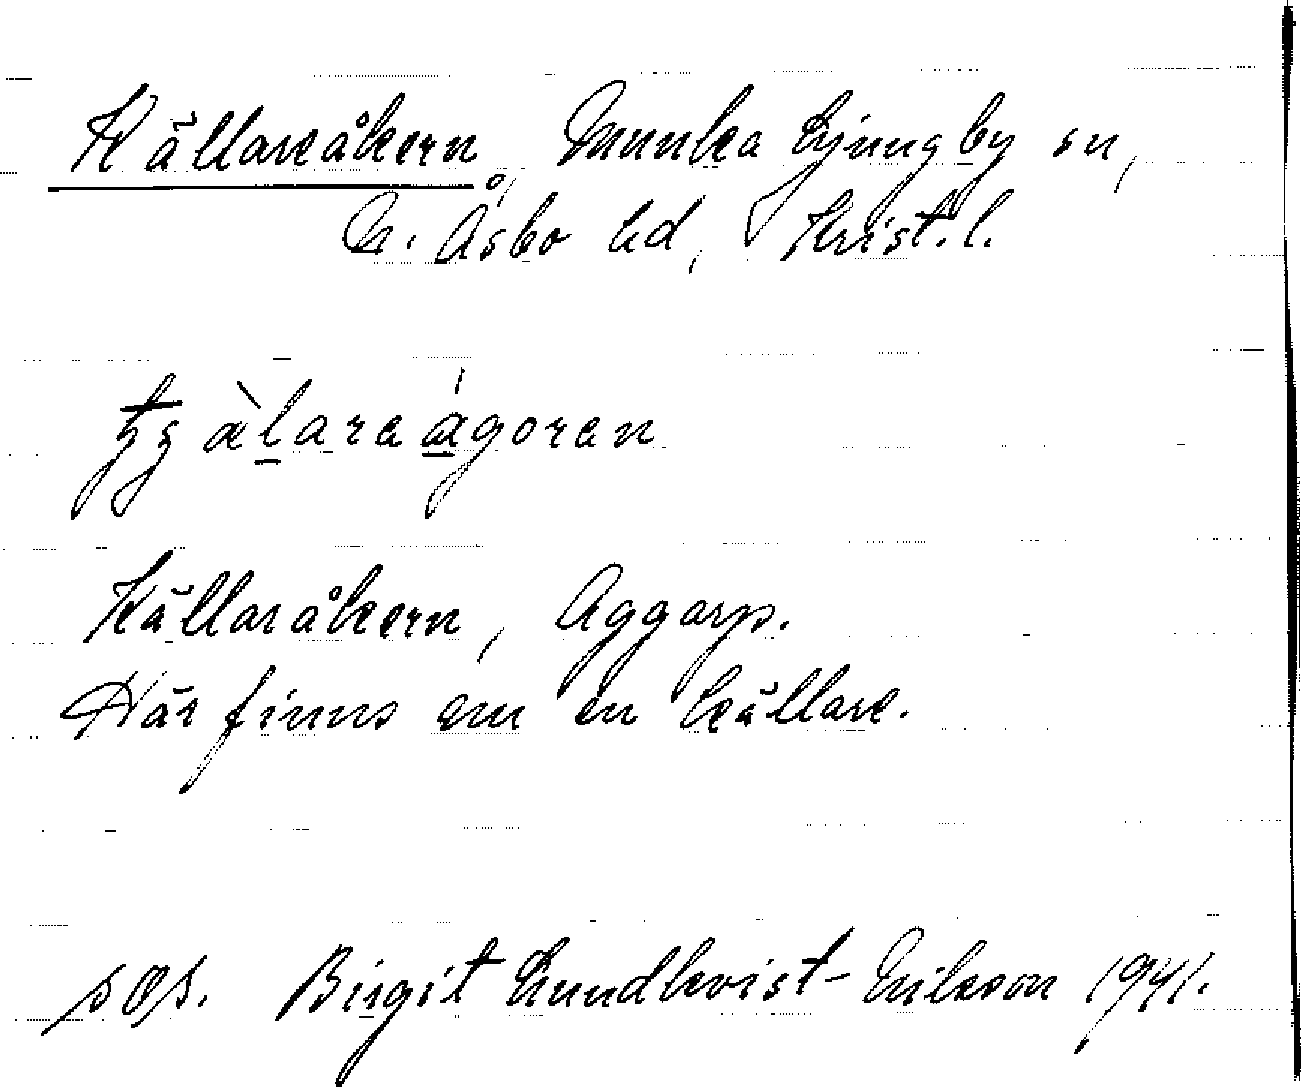 Källareåkern, Munka Ljungby sn,
N. Åsbo hd, Krist.l.
àlareágoren
Källaråkern, Aggarp.
Här finns en källare.
Birgit Lundkvist-Erikson 1941.